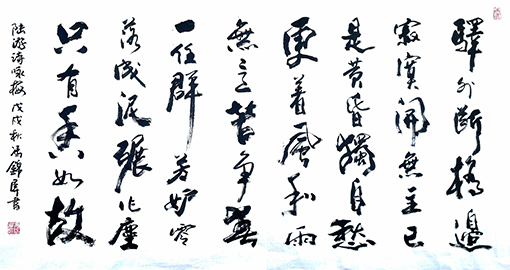 驛外斷橋邊
寂寞開無主已
是黄昏獨自愁
更着風和雨
無意苦爭春
一任群芳妒零
落成泥碾作塵
只有香如故
陸游詩詠梅 戊戌秋 錦書